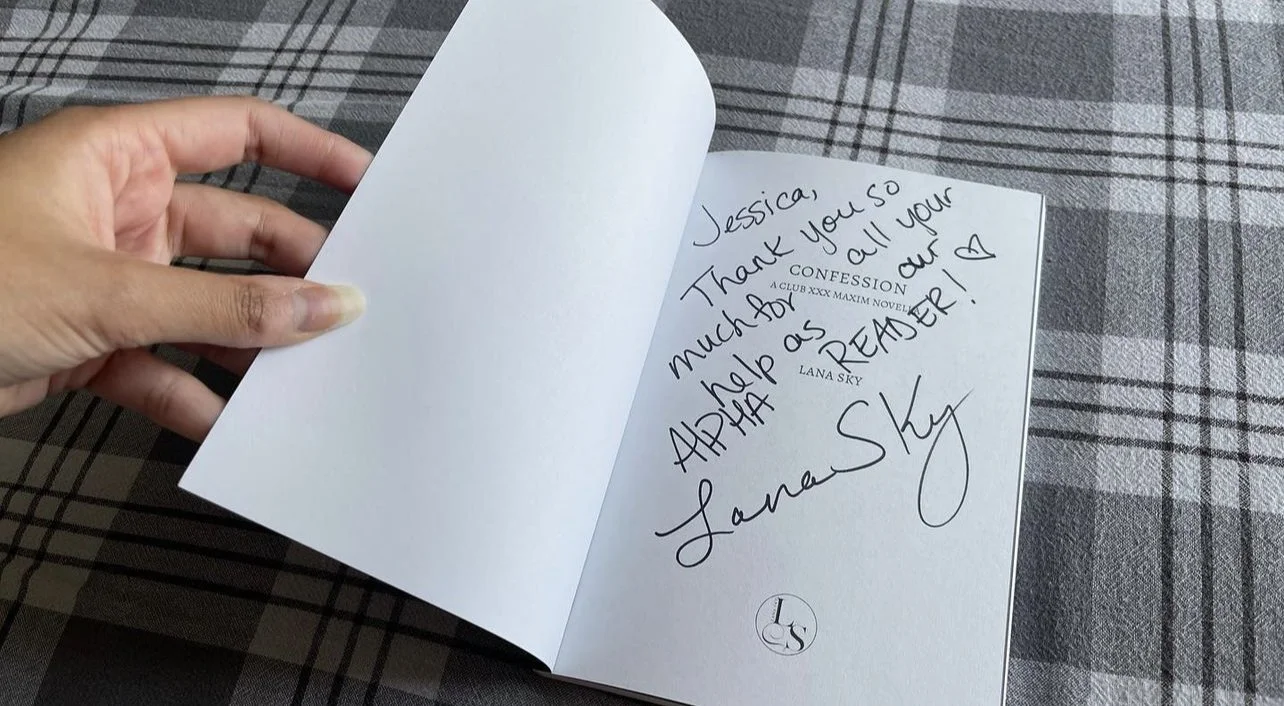 Jessica,
Thank you so
much for all your
help as our
ALPHA READER! ♡
CONFESSION
A CLUB XXX MAXIM NOVELLA
LANA SKY
Lana Sky
LS